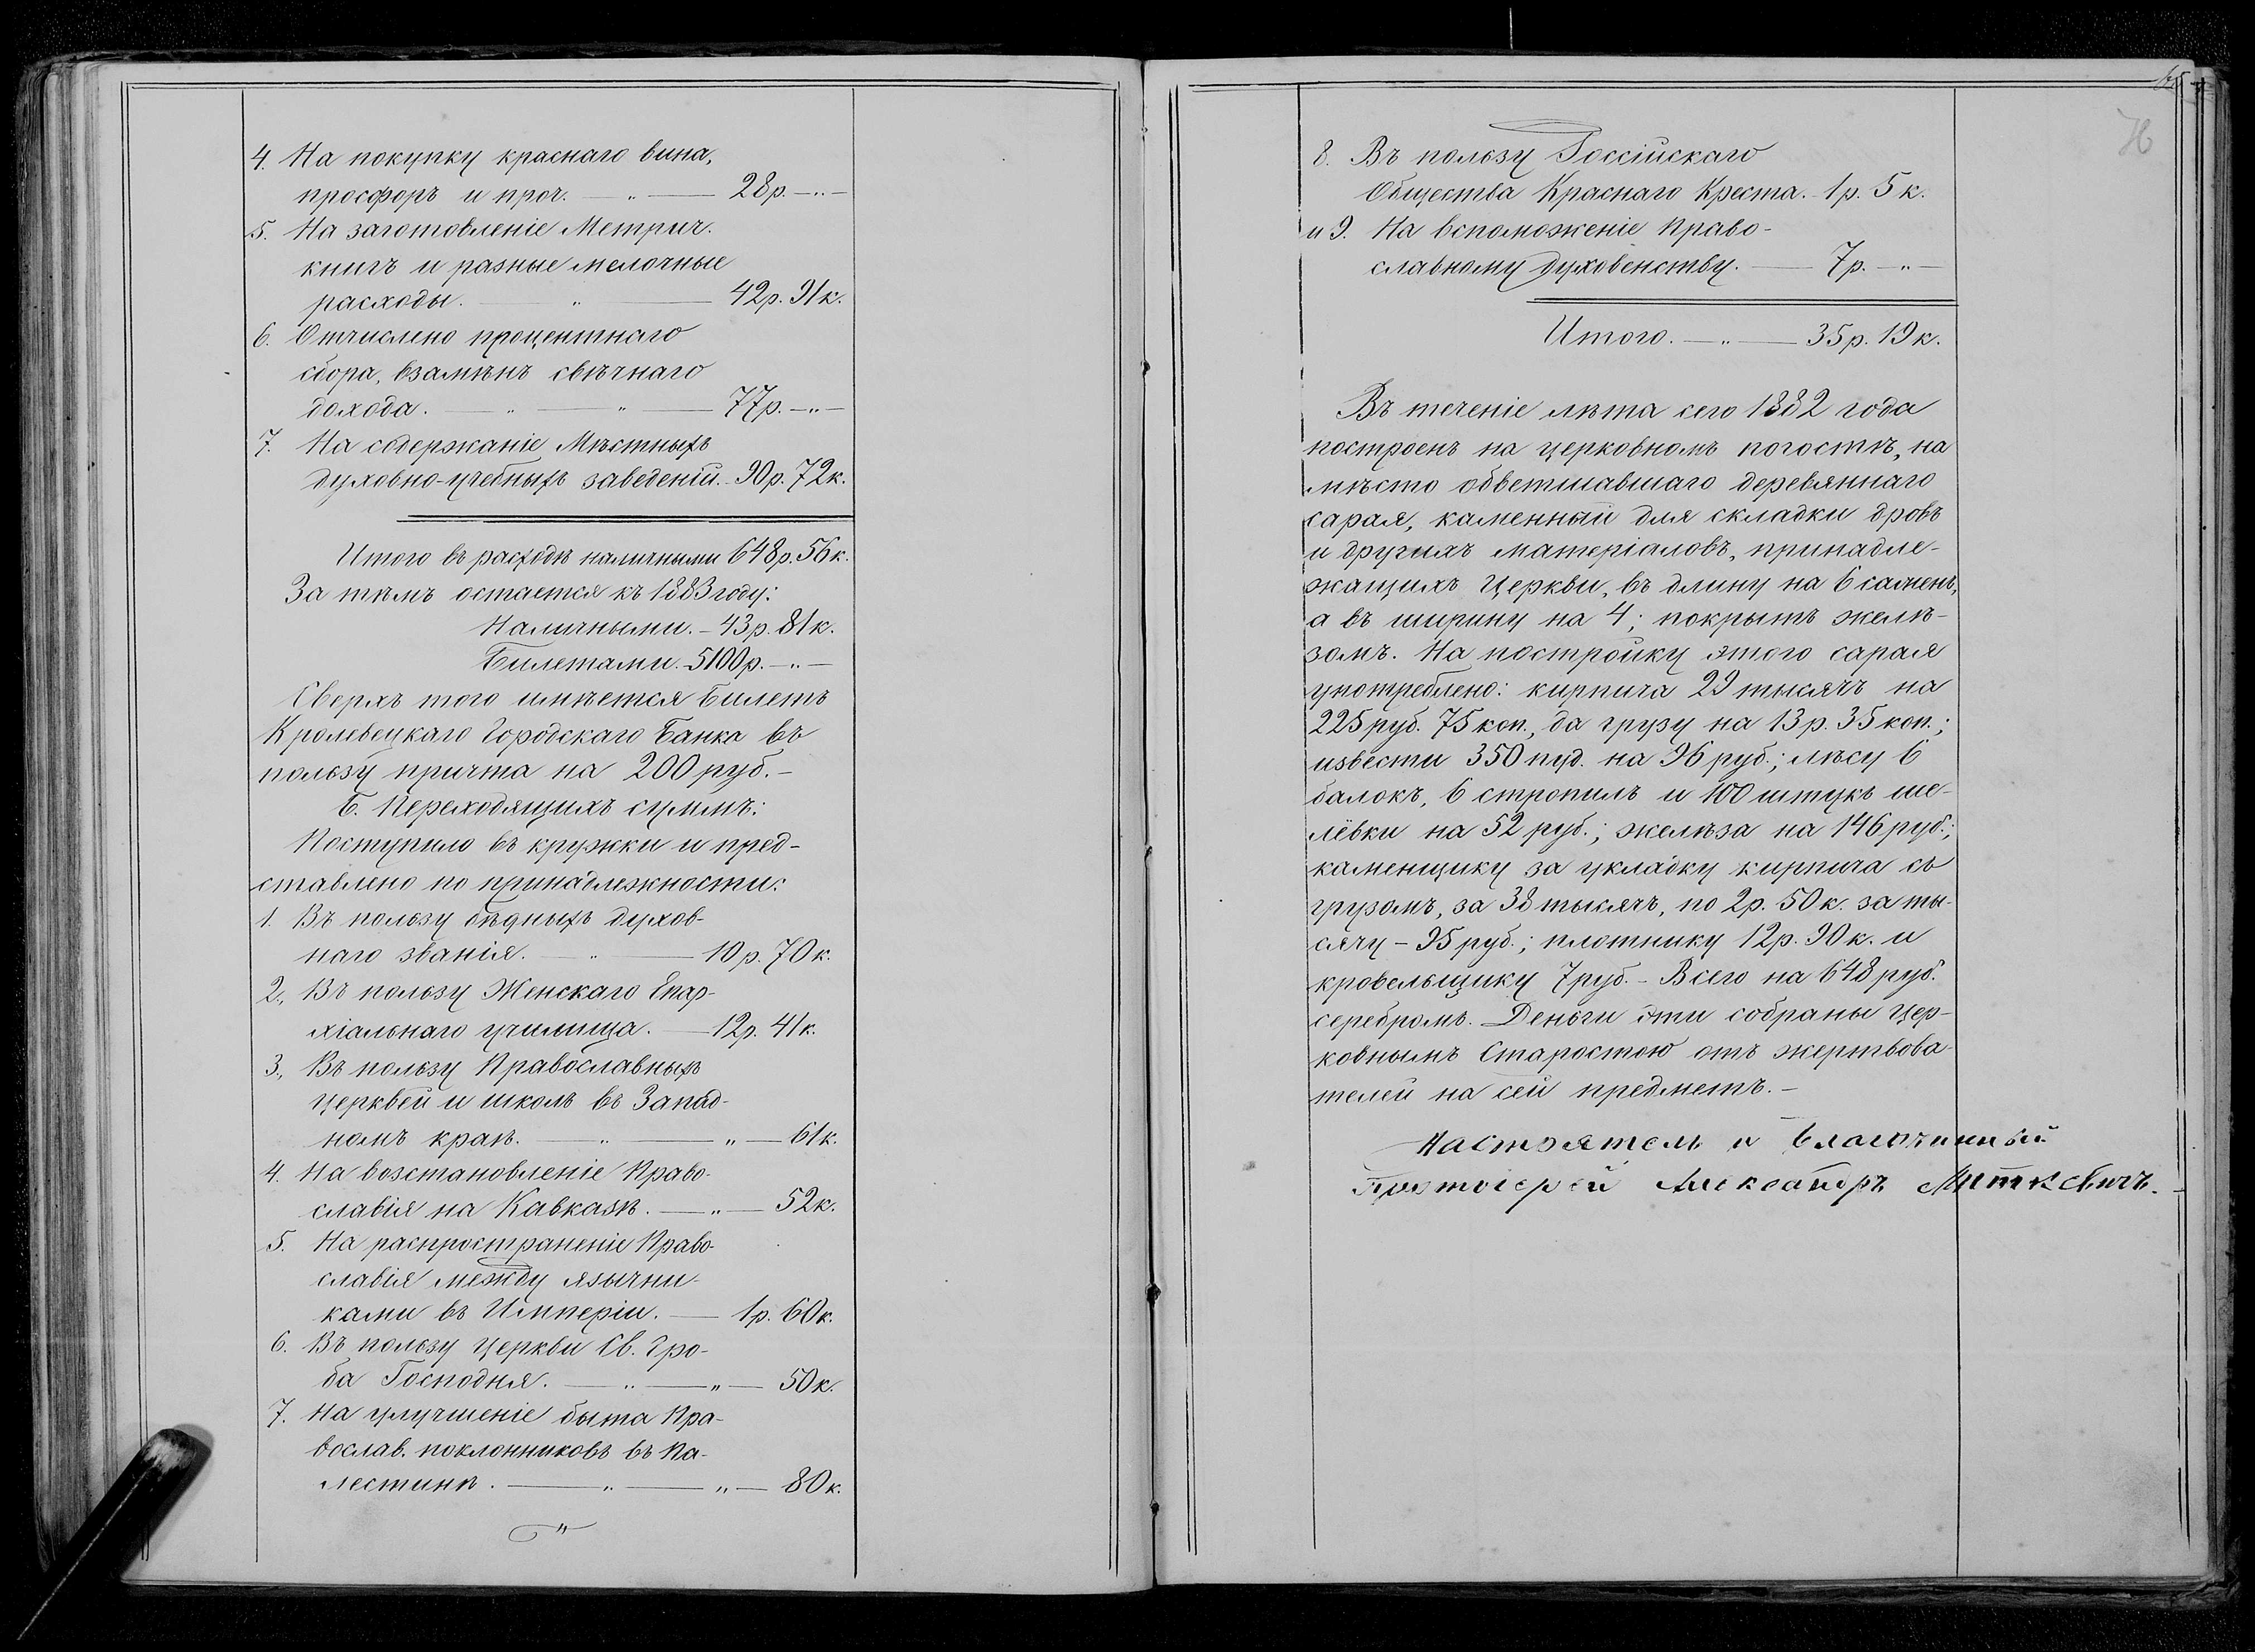 4. На покупку краснаго вина,
просфоръ и проч. — „ — 28р. — „ —
5. На заготовленіе Метрич.
книгъ и разные мелочные
расходы. — „ — 42р. 91к.
6. Отчислено процентнаго
сбора, взамѣнъ свѣчнаго
дохода. — „ — „ — 77р. — „ —
7. На содержаніе Мѣстныхъ
духовно-учебныхъ заведеній. - 90р. 72к.
Итого въ расходѣ наличными 648р. 56к.
За тѣмъ остается къ 1883 году:
Наличными. - 43р. 81к.
Билетами. - 5100р. — „ —
Сверхъ того имѣется Билетъ
Кролевецкаго Городскаго Банка въ
пользу причта на 200 руб. -
Б. Переходящихъ суммъ:
Поступило въ кружки и пред-
ставлено по принадлежности:
1. Въ пользу бѣдныхъ духов-
наго званія. — „ — 10р. 70к.
2., Въ пользу Женскаго Епар-
хіальнаго училища. — 12р. 41к.
3., Въ пользу Православныхъ
церквей и школъ въ Запад-
номъ краѣ. — „ — „ — 61к.
4. На возстановленіе Право-
славія на Кавказѣ. — „ — 52к.
5. На распространеніе Право-
славія между язычни-
ками въ Имперіи. — 1р. 60к.
6. Въ пользу церкви Св. Гро-
ба Господня. — „ — „ — 50к.
7. На улучшеніе быта Пра-
вослав. поклонниковъ въ Па-
лестинѣ. — „ — „ — 80к.
76
8. Въ пользу Россійскаго
Общества Краснаго Креста. - 1р. 5к.
и 9. На вспоможеніе Право-
славному духовенству. — 7р. — „ —
Итого. — „ — 35р. 19к.
Въ теченіе лѣта сего 1882 года
построенъ на церковномъ погостѣ, на
мѣсто обветшавшаго деревяннаго
сарая, каменный для складки дровъ
и другихъ матеріаловъ, принадле-
жащихъ Церкви, въ длину на 6 сажень,
а въ ширину на 4; покрытъ желѣ-
зомъ. На постройку этого сарая
употреблено: кирпича 29 тысячъ на
225 руб. 75 коп., да грузу на 13р. 35 коп.;
извести 350 пуд. на 96 руб.; лѣсу 6
балокъ, 6 стропилъ и 100 штукъ ше-
лёвки на 52 руб.; желѣза на 146 руб.;
каменщику за укладку кирпича съ
грузомъ, за 38 тысячъ, по 2р. 50к. за ты-
сячу - 95 руб.; плотнику 12р. 90к. и
кровельщику 7 руб. - Всего на 648 руб.
серебромъ. Деньги эти собраны Цер-
ковнымъ Старостою отъ жертвова-
телей на сей предметъ. -
Настоятель и Благочинный
Протоіерей Александръ Миткевичъ.